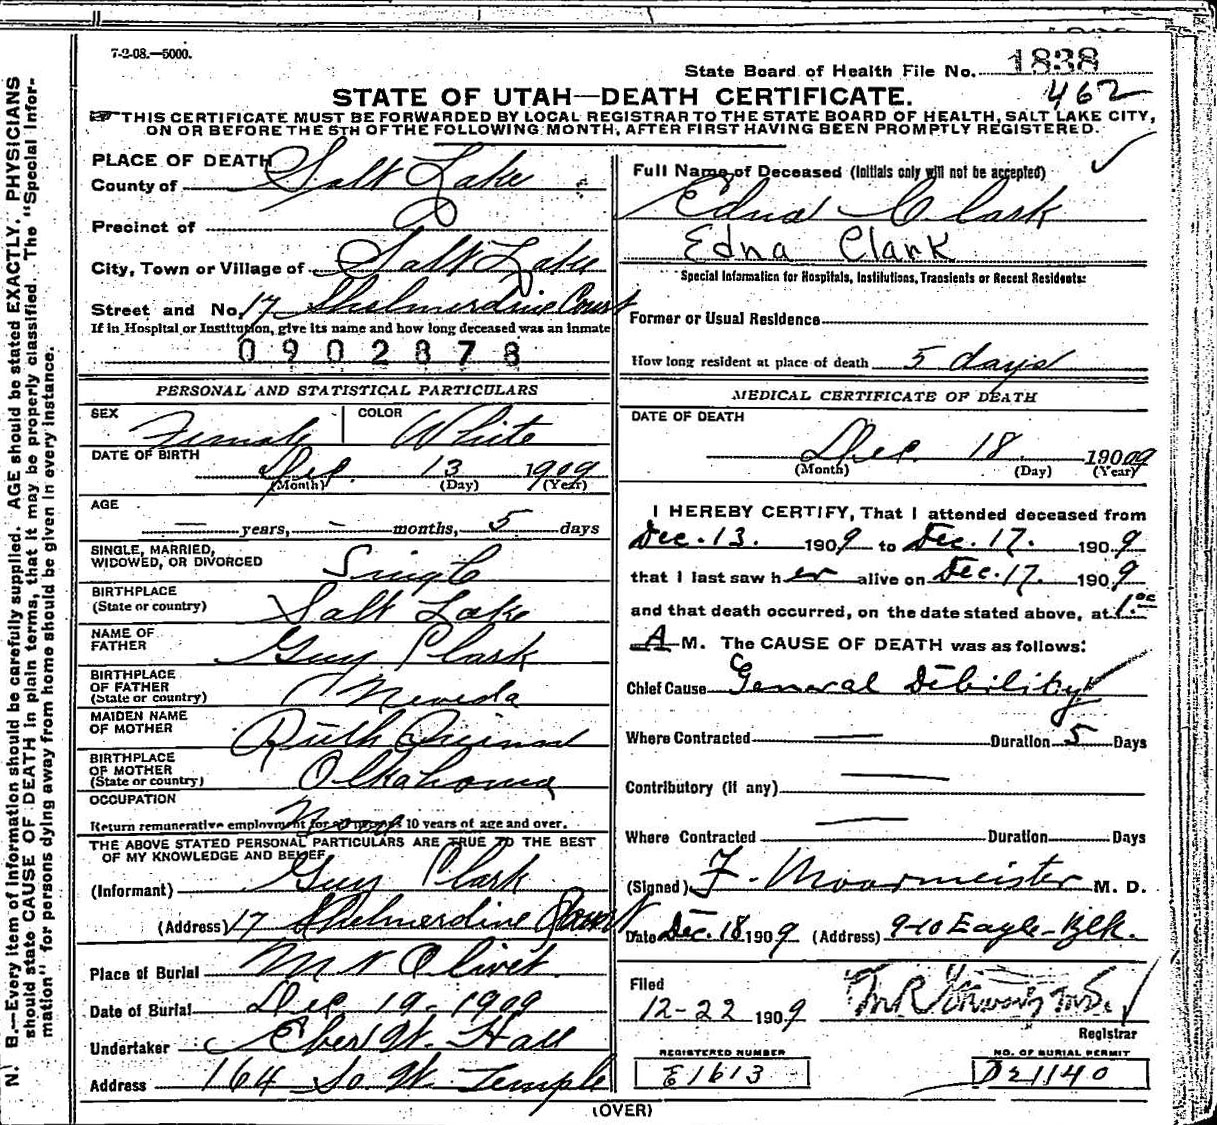 7-2-08.—5000.
State Board of Health File No. 1838
462
STATE OF UTAH—DEATH CERTIFICATE.
THIS CERTIFICATE MUST BE FORWARDED BY LOCAL REGISTRAR TO THE STATE BOARD OF HEALTH, SALT LAKE CITY,
ON OR BEFORE THE 5TH OF THE FOLLOWING MONTH, AFTER FIRST HAVING BEEN PROMPTLY REGISTERED.
PLACE OF DEATH
County of Salt Lake
Precinct of 2
City, Town or Village of Salt Lake
Street and No. 17 Shelmerdine Court
If in Hospital or Institution, give its name and how long deceased was an inmate
0902878
PERSONAL AND STATISTICAL PARTICULARS
SEX Female COLOR White
DATE OF BIRTH Dec. 13 1909
(Month) (Day) (Year)
AGE
— years, - months, 5 days
SINGLE, MARRIED,
WIDOWED, OR DIVORCED Single
BIRTHPLACE
(State or country) Salt Lake
NAME OF
FATHER Guy Clark
BIRTHPLACE
OF FATHER
(State or country) Neveda
MAIDEN NAME
OF MOTHER Ruth Quinn
BIRTHPLACE
OF MOTHER
(State or country) Olkahoma
OCCUPATION
Return remunerative employment for all persons 10 years of age and over. None
THE ABOVE STATED PERSONAL PARTICULARS ARE TRUE TO THE BEST
OF MY KNOWLEDGE AND BELIEF
(Informant) Guy Clark
(Address) 17 Shelmerdine Court
Place of Burial Mt Olivet
Date of Burial Dec 19-1909
Undertaker Eber W. Hall
Address 164 So. W. Temple
Full Name of Deceased (Initials only will not be accepted)
Edna Clark
Edna Clark
Special Information for Hospitals, Institutions, Transients or Recent Residents:
Former or Usual Residence
How long resident at place of death 5 days
MEDICAL CERTIFICATE OF DEATH
DATE OF DEATH
Dec. 18 190 09
(Month) (Day) (Year)
I HEREBY CERTIFY, That I attended deceased from
Dec. 13. 1909 to Dec. 17. 1909
that I last saw her alive on Dec. 17. 1909
and that death occurred, on the date stated above, at 1.00
A M. The CAUSE OF DEATH was as follows:
Chief Cause General Debility
Where Contracted — Duration 5 Days
Contributory (if any) —
Where Contracted — Duration Days
(Signed) F. Moormeister M. D.
Date Dec. 18 1909 (Address) 9-10 Eagle-Blk.
Filed
12-22 1909
Registrar
REGISTERED NUMBER
E1613
NO. OF BURIAL PERMIT
D21140
(OVER)
N. B.—Every item of information should be carefully supplied. AGE should be stated EXACTLY. PHYSICIANS
should state CAUSE OF DEATH in plain terms, that it may be properly classified. The "Special Infor-
mation" for persons dying away from home should be given in every instance.